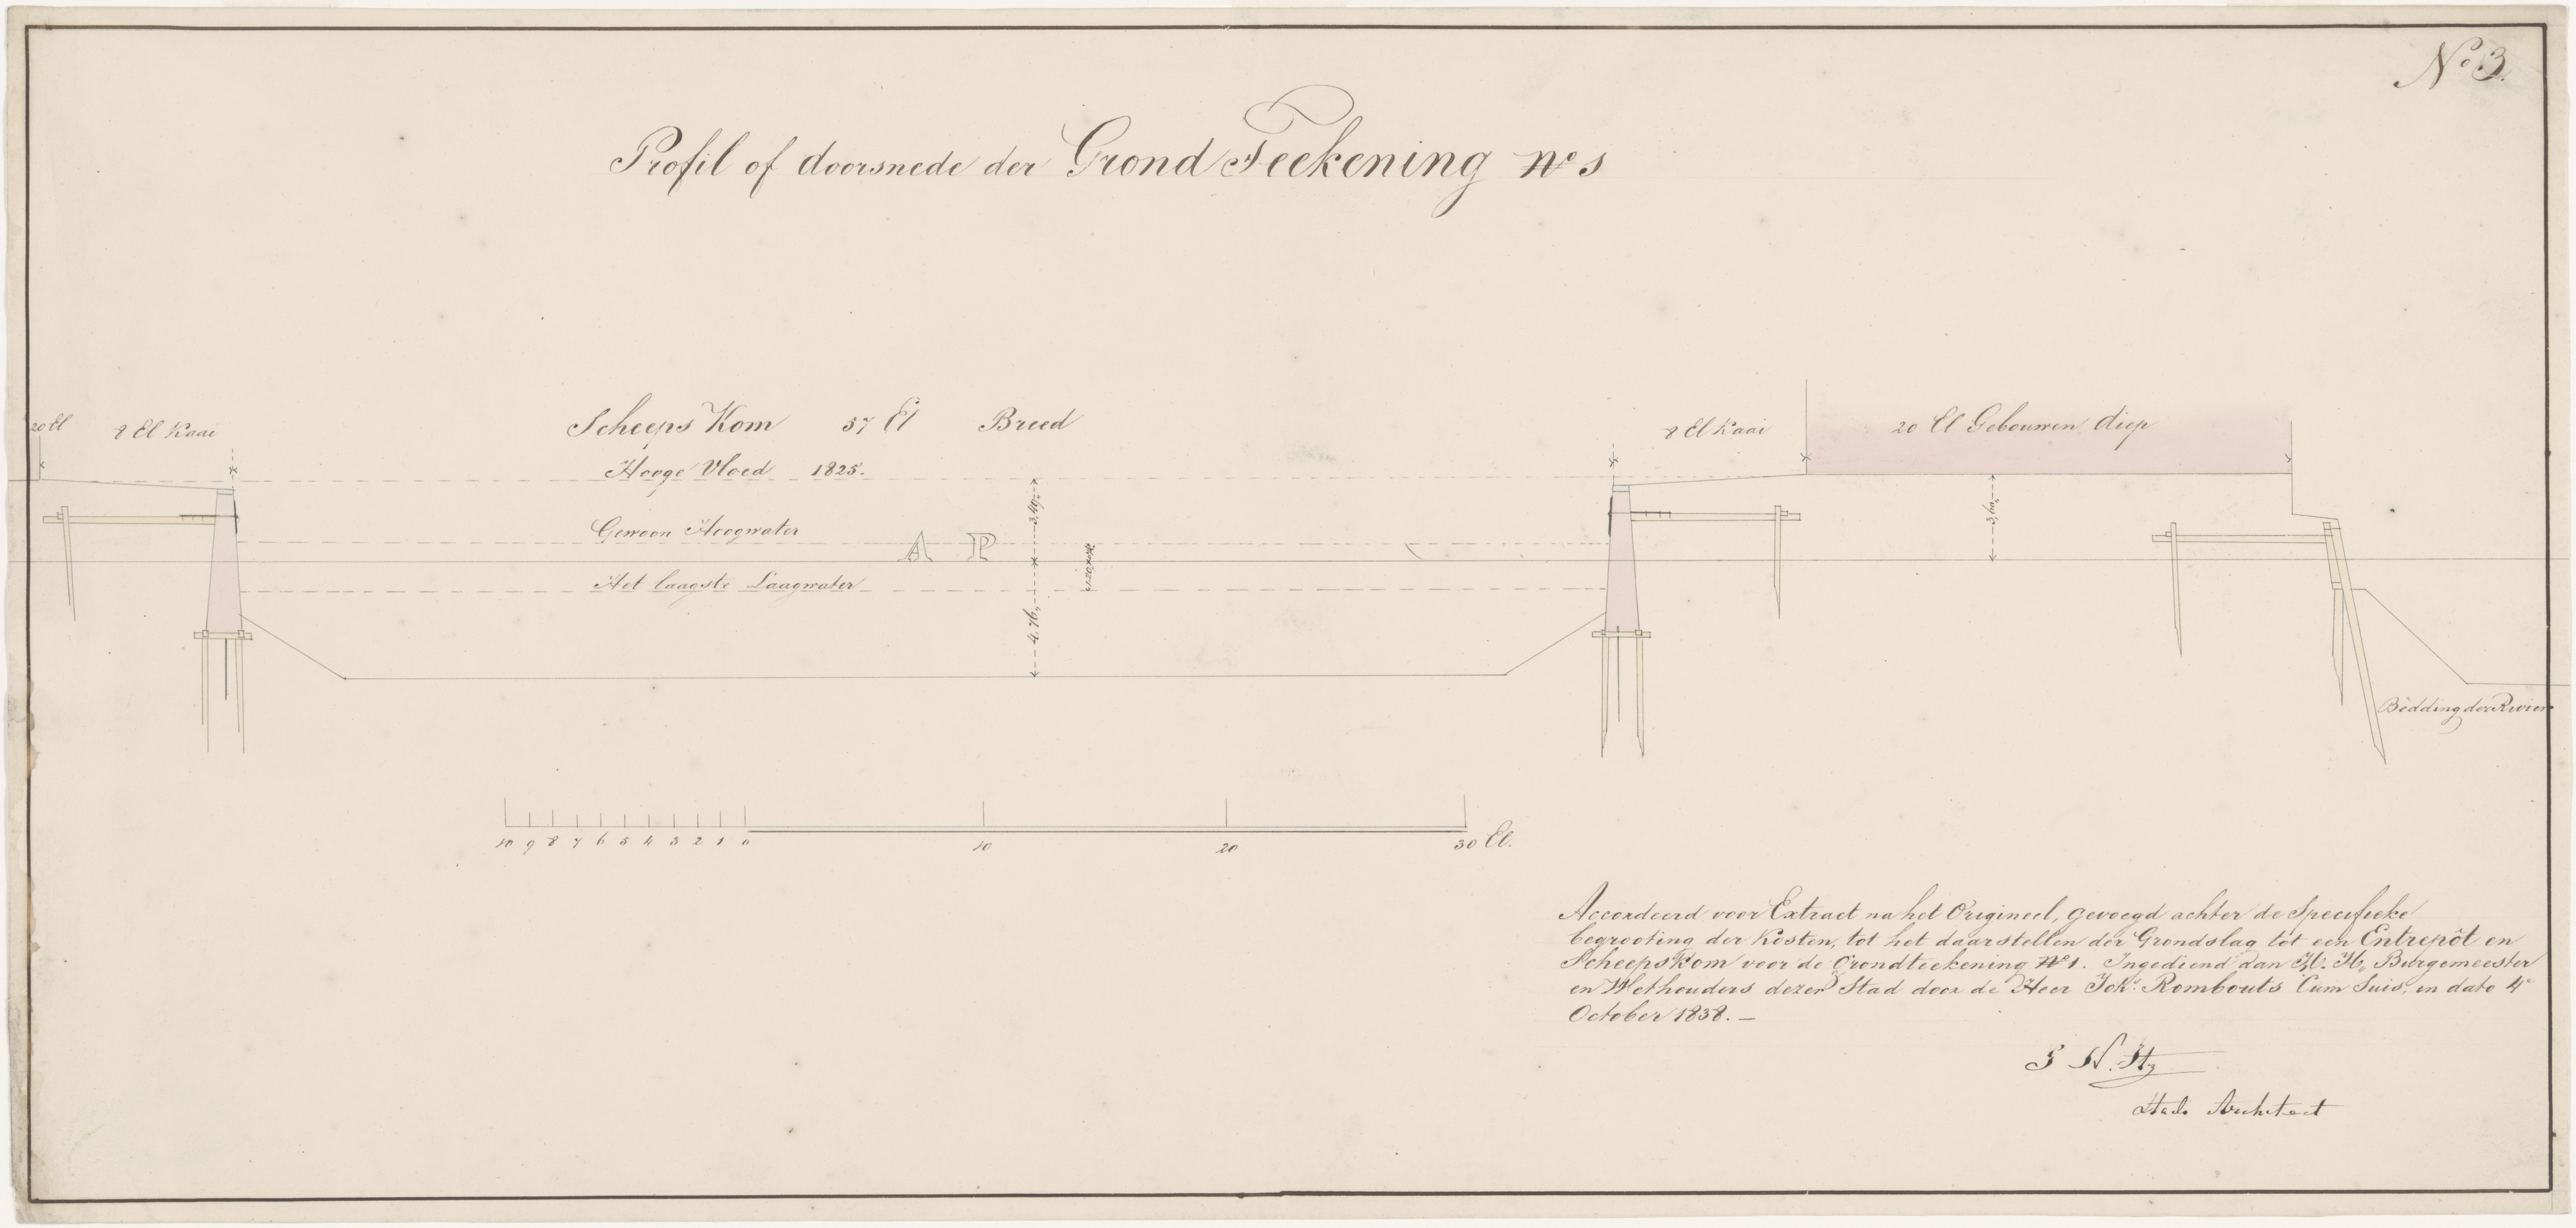 No 3.
Profil of doorsnede der Grond Teekening No 1
20 El
8 El Kaai
Scheeps Kom 57 El Breed
8 El Kaai
20 El Gebouwen diep
Hooge Vloed 1825.
3,49,
3,60,
Gewoon Hoogwater
A P
Het laagste Laagwater
4,76,
Bedding der Rivier
10 9 8 7 6 5 4 3 2 1 0 10 20 30 El.
Accordeerd voor Extract na het Origineel, gevoegd achter de Specifieke
begrooting der Kosten, tot het daarstellen der Grondslag tot een Entrepôt en
Scheepskom voor de Grondteekening No 1. Ingediend aan H. H. Burgemeester
en Wethouders dezer Stad door de Heer Joh. Rombouts Cum Suis, in dato 4e
October 1838. —
Stads Architect